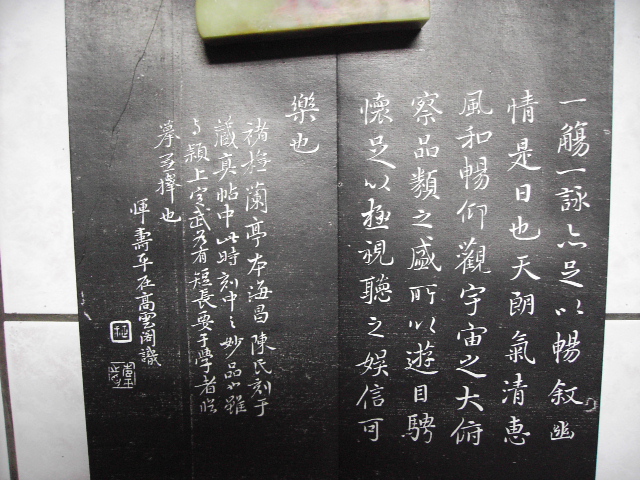 一觴一詠亦足以暢叙幽
情是日也天朗氣清惠
風和暢仰觀宇宙之大俯
察品類之盛所以遊目騁
懷足以極視聽之娱信可
樂也
褚橅蘭亭本海昌陳氏刻于
藏真帖中此時刻中之妙品也雖
与潁上定武各有短長要于學者臨
摹無擇也
惲壽平在高雲閣識